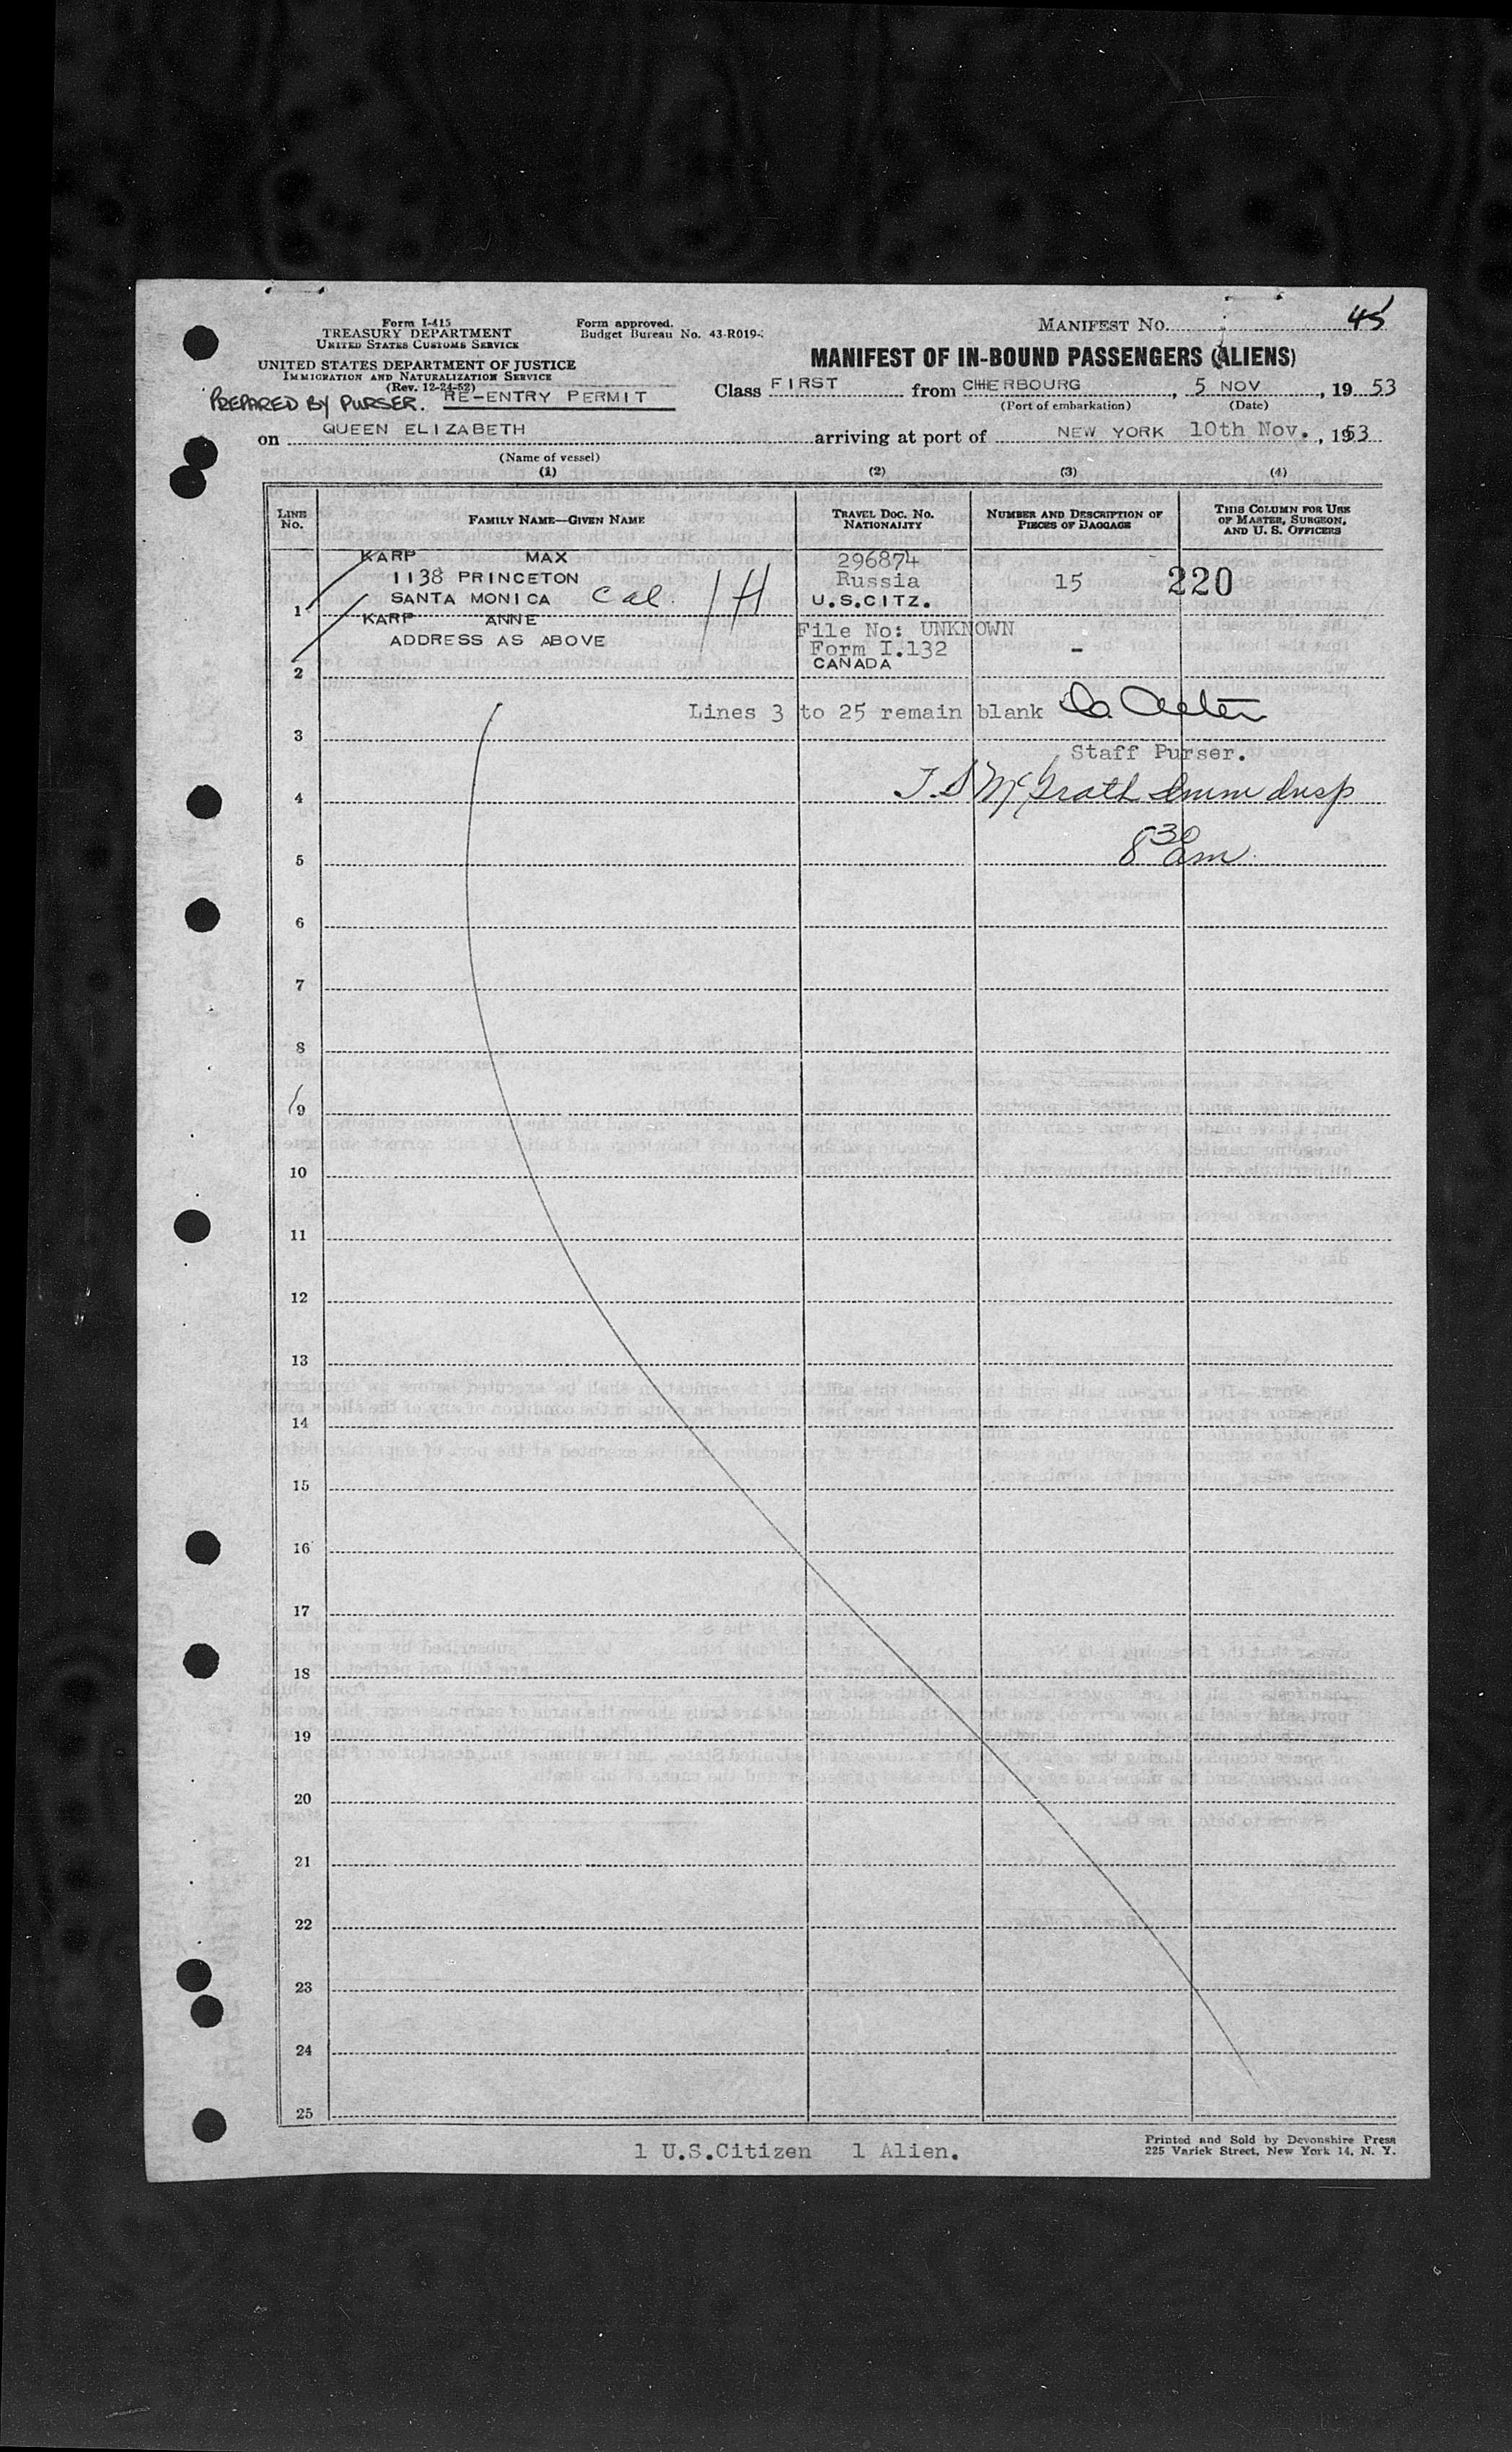 45
Form I-415
TREASURY DEPARTMENT
UNITED STATES CUSTOMS SERVICE
Form approved.
Budget Bureau No. 43-R019-
MANIFEST NO.
UNITED STATES DEPARTMENT OF JUSTICE
IMMIGRATION AND NATURALIZATION SERVICE
(Rev. 12-24-52)
MANIFEST OF IN-BOUND PASSENGERS (ALIENS)
PREPARED BY PURSER. RE-ENTRY PERMIT
Class FIRST from CHERBOURG, 5 NOV, 19 53
(Port of embarkation) (Date)
on QUEEN ELIZABETH arriving at port of NEW YORK 10th Nov., 1953
(Name of vessel)
(1) (2) (3) (4)
LINE NO.
FAMILY NAME—GIVEN NAME
TRAVEL DOC. NO. NATIONALITY
NUMBER AND DESCRIPTION OF PIECES OF BAGGAGE
THIS COLUMN FOR USE OF MASTER, SURGEON, AND U. S. OFFICERS
KARP MAX 296874
1138 PRINCETON Russia 15 220
1 SANTA MONICA Cal. U.S.CITZ.
KARP ANNE File No: UNKNOWN
ADDRESS AS ABOVE Form I.132 -
2 CANADA
Lines 3 to 25 remain blank
3
Staff Purser.
4 T.S McGrath Imm Insp
5 8 30 am
6
7
8
9
10
11
12
13
14
15
16
17
18
19
20
21
22
23
24
25
1 U.S.Citizen 1 Alien.
Printed and Sold by Devonshire Press
225 Varick Street, New York 14, N. Y.